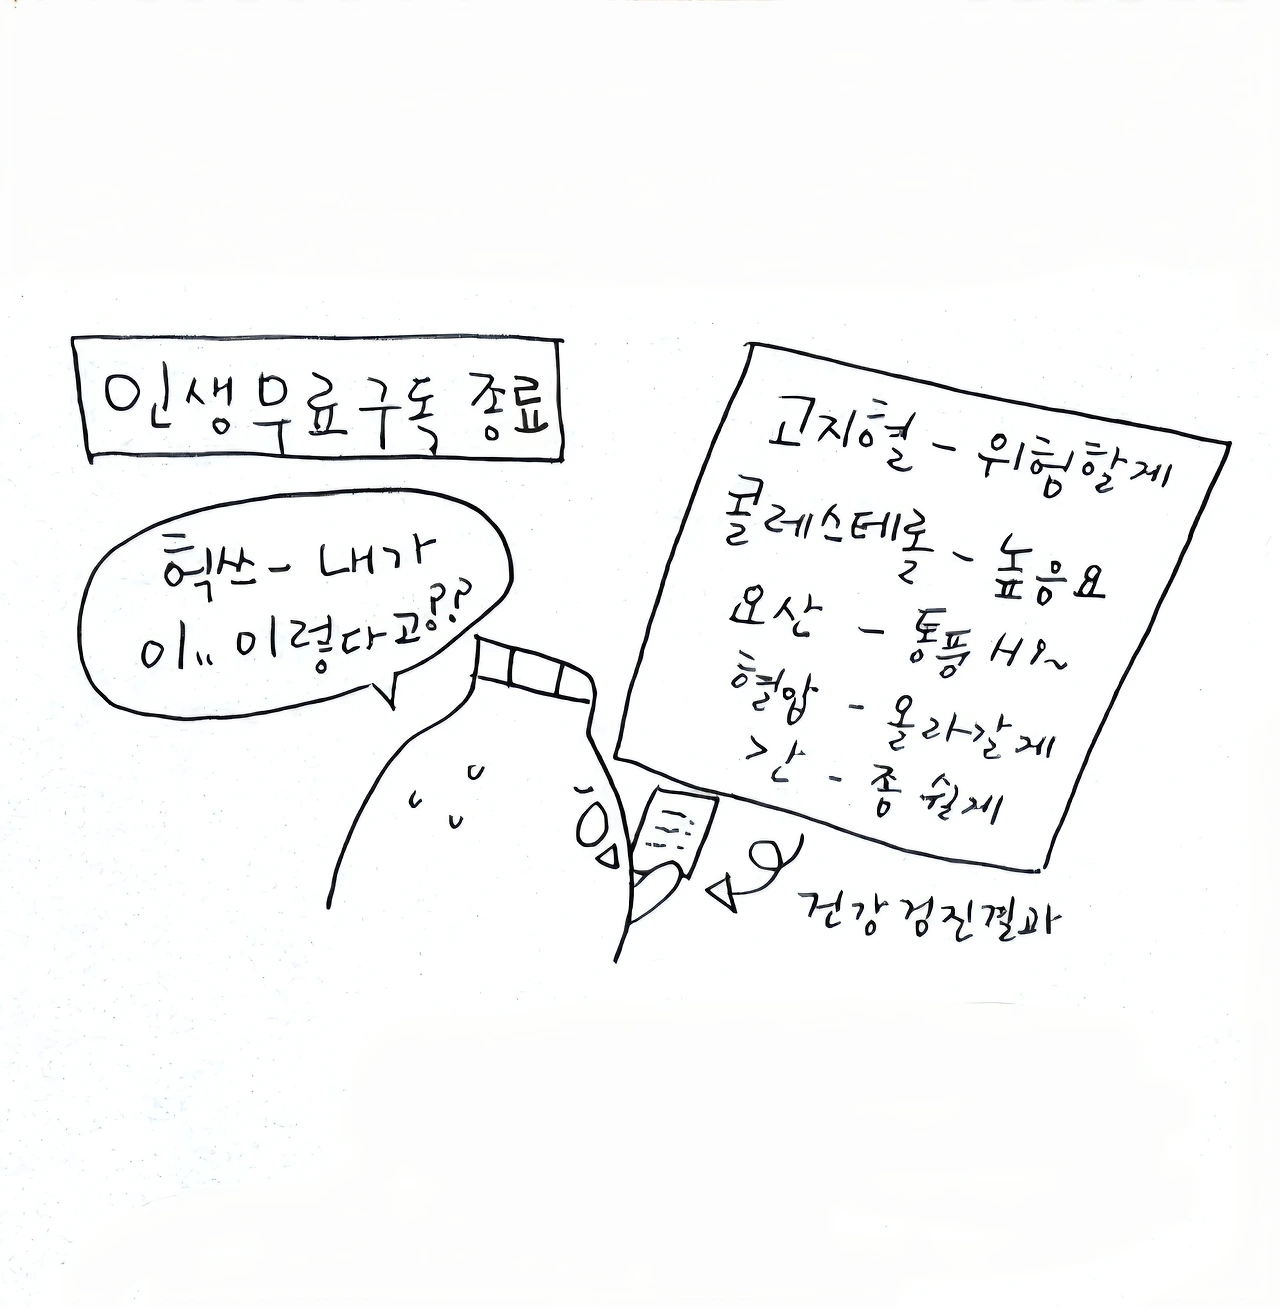 인생무료구독 종료
헉쓰- 내가
이.. 이렇다고??
고지혈 - 위험할게
콜레스테롤 - 높음요
요산 - 통풍 HI~
혈압 - 올라갈게
간 - 좀 쉴게
건강검진결과